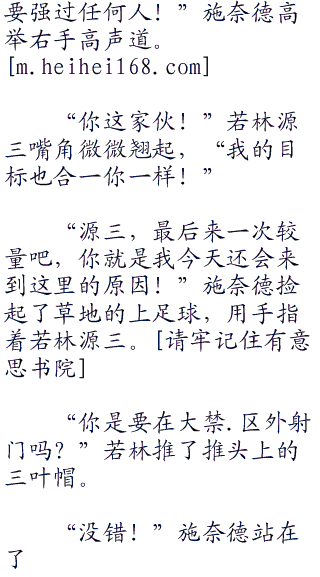 要强过任何人！”施奈德高
举右手高声道。
[m.heihei168.com]
“你这家伙！”若林源
三嘴角微微翘起，“我的目
标也合一你一样！”
“源三，最后来一次较
量吧，你就是我今天还会来
到这里的原因！”施奈德捡
起了草地的上足球，用手指
着若林源三。[请牢记住有意
思书院]
“你是要在大禁.区外射
门吗？”若林推了推头上的
三叶帽。
“没错！”施奈德站在
了